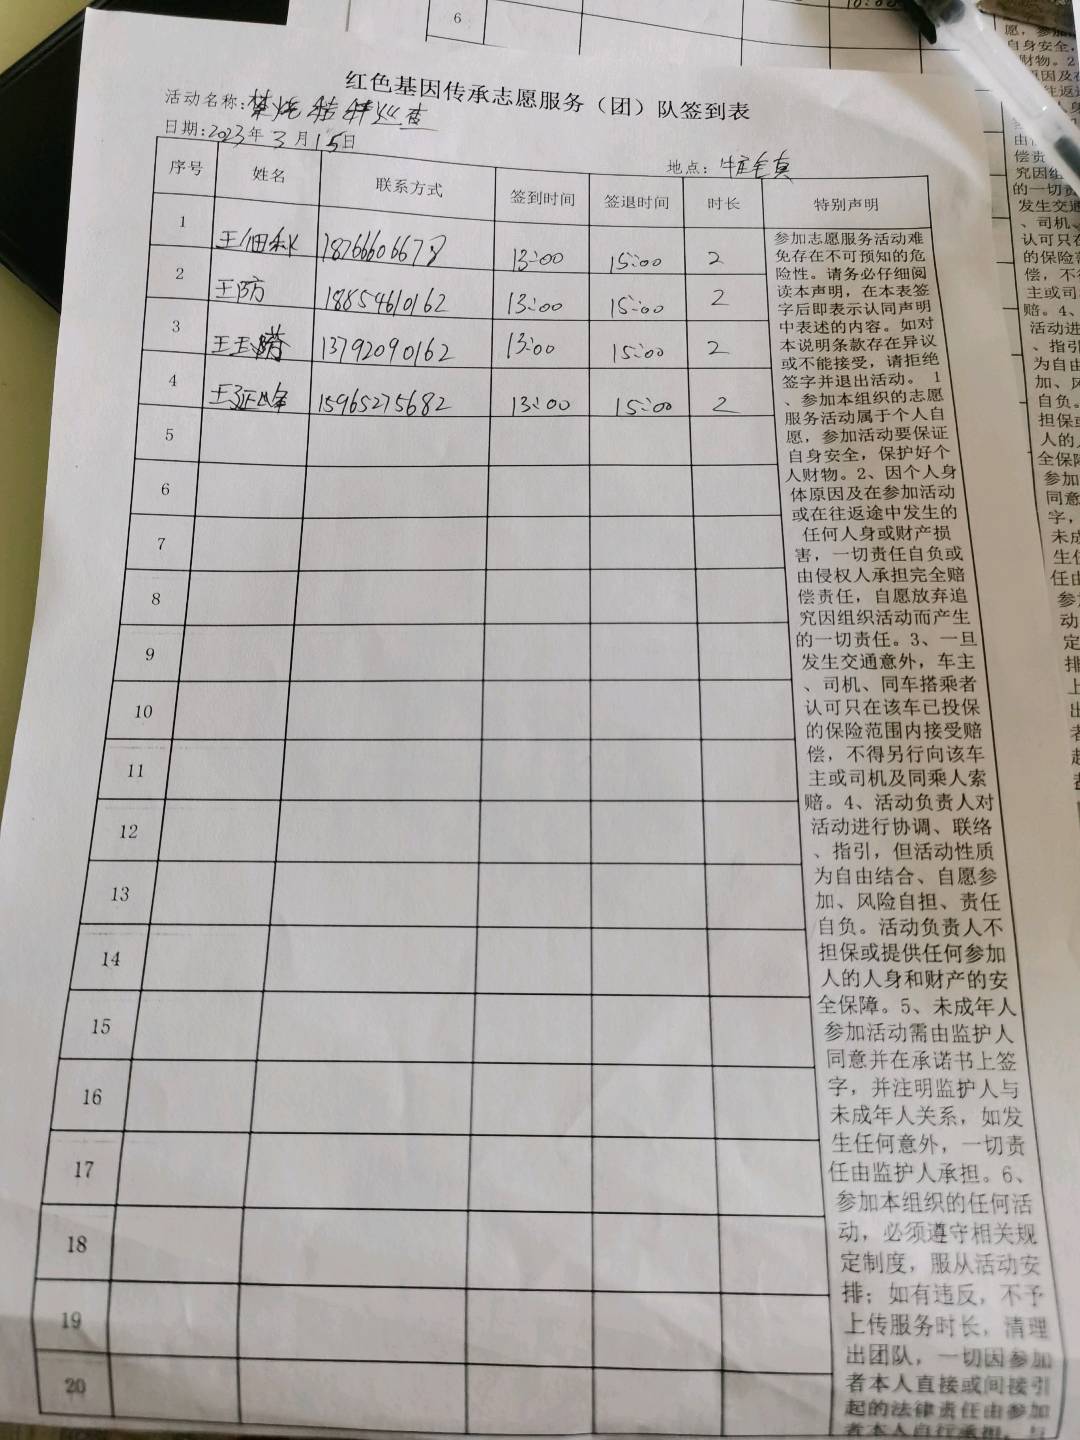 红色基因传承志愿服务（团）队签到表
活动名称:禁烧秸秆巡查
日期:2023年3月15日
地点:
序号 姓名 联系方式 签到时间 签退时间 时长 特别声明
1 18766606678 13:00 15:00 2
2 王防 18854610162 13:00 15:00 2
3 13792090162 13:00 15:00 2
4 15965275682 13:00 15:00 2
5
6
7
8
9
10
11
12
13
14
15
16
17
18
19
20
参加志愿服务活动难
免存在不可预知的危
险性。请务必仔细阅
读本声明，在本表签
字后即表示认同声明
中表述的内容。如对
本说明条款存在异议
或不能接受，请拒绝
签字并退出活动。 1
、参加本组织的志愿
服务活动属于个人自
愿，参加活动要保证
自身安全，保护好个
人财物。2、因个人身
体原因及在参加活动
或在往返途中发生的
任何人身或财产损
害，一切责任自负或
由侵权人承担完全赔
偿责任，自愿放弃追
究因组织活动而产生
的一切责任。3、一旦
发生交通意外，车主
、司机、同车搭乘者
认可只在该车已投保
的保险范围内接受赔
偿，不得另行向该车
主或司机及同乘人索
赔。4、活动负责人对
活动进行协调、联络
、指引，但活动性质
为自由结合、自愿参
加、风险自担、责任
自负。活动负责人不
担保或提供任何参加
人的人身和财产的安
全保障。5、未成年人
参加活动需由监护人
同意并在承诺书上签
字，并注明监护人与
未成年人关系，如发
生任何意外，一切责
任由监护人承担。6、
参加本组织的任何活
动，必须遵守相关规
定制度，服从活动安
排；如有违反，不予
上传服务时长，清理
出团队，一切因参加
者本人直接或间接引
起的法律责任由参加
者本人自行承担，与
6